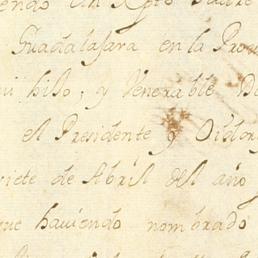 endo en Xpto Padre
Guadalaxara en la Prou
mi hijo, y Venerable D
el Presidente y Oidor
siete de Abril del año
que haviendo nombrado